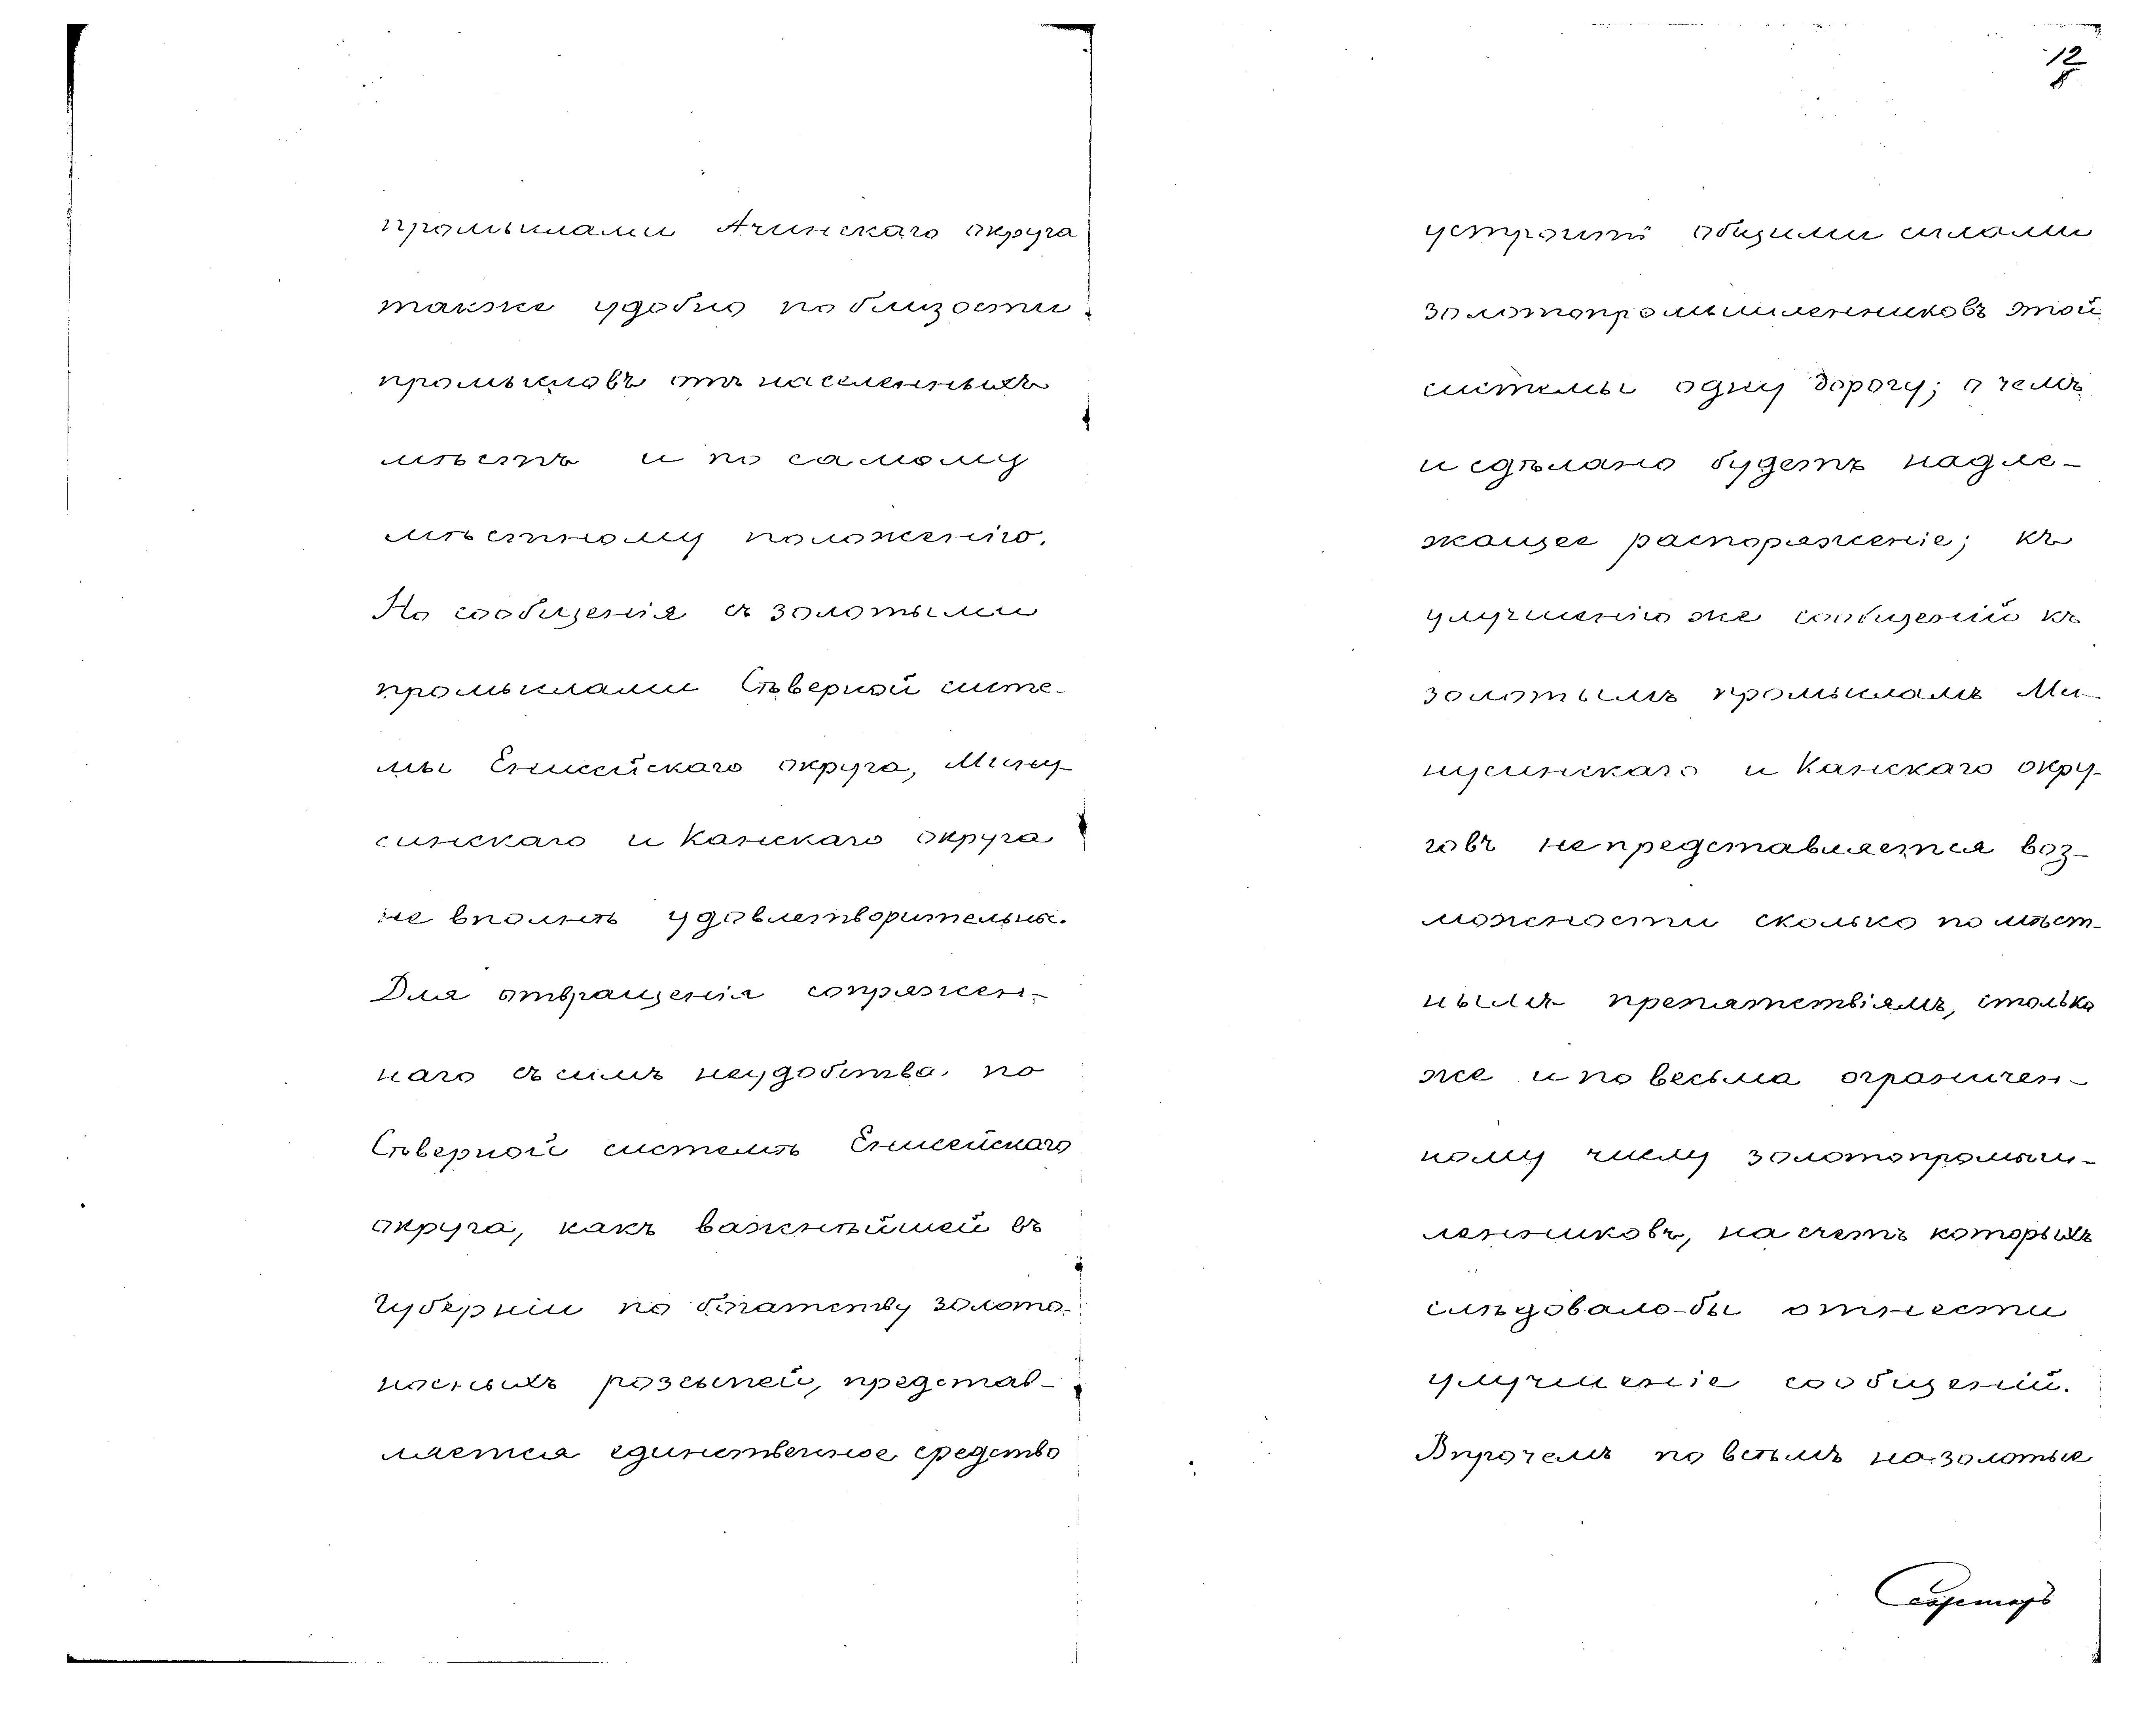 промыслами Ачинскаго округа
также удобно по близости
промысловъ отъ населенныхъ
мѣстъ и по самому
мѣстному положенію.
Но сообщенія съ золотыми
промыслами Сѣверной систе-
мы Енисейскаго округа, Мину-
синскаго и Канскаго округа
не вполнѣ удовлетворительны.
Для отвращенія сопряжен-
наго съ симъ неудобства по
Сѣверной системѣ Енисейскаго
округа, какъ важнѣйшей въ
Губерніи по богатству золото-
носныхъ розсыпей, представ-
ляется единственное средство
12
устроить общими силами
золотопромышленниковъ этой
системы одну дорогу; о чемъ
и сдѣлано будетъ надле-
жащее распоряженіе; къ
улучшенію же сообщеній къ
золотымъ промысламъ Ми-
нусинскаго и Канскаго окру-
говъ непредставляется воз-
можности сколько по мѣст-
нымъ препятствіямъ, столько
же и по весьма ограничен-
ному числу золотопромыш-
ленниковъ, на счетъ которыхъ
слѣдовало-бы отнести
улучшеніе сообщеній.
Впрочемъ по всѣмъ на золотые